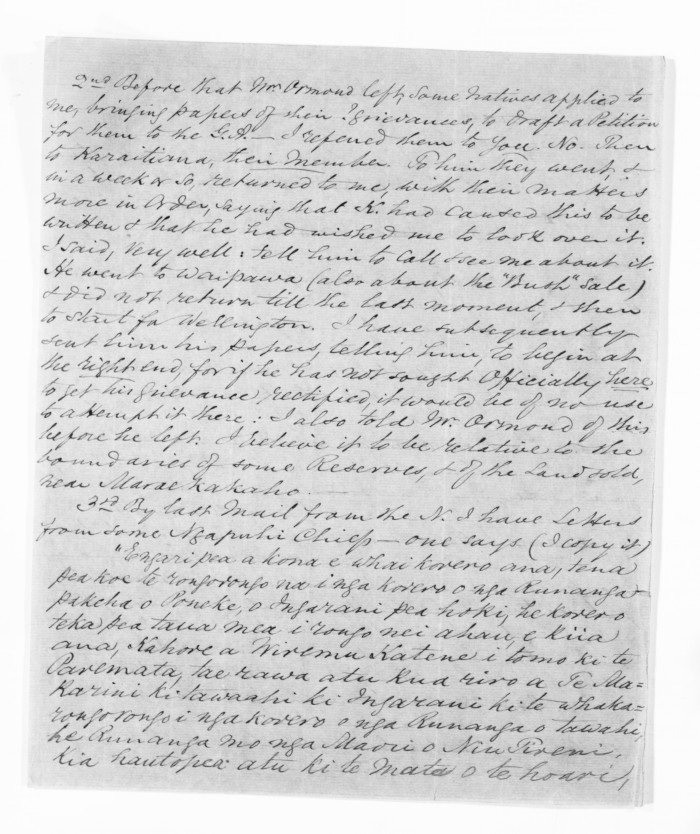 2nd Before that Mr. Ormond left, some Natives applied to
me, bringing papers of their ?grievances, to draft a Petition
for them to the G.A. — I referred them to You. No. Then
to Karaitiana, their Member. To him they went, &
in a week or so, returned to me, with their matters
more in Order, saying that K. had caused this to be
written & that he had wished me to look over it.
I said, Very well: tell him to call & see me about it.
He went to Waipawa (also about the "Bush" Sale)
& did not return till the last moment, & then
to start for Wellington. I have subsequently
sent him his papers, telling him, to begin at
the right end, for if he has not sought Officially here
to get his grievance rectified it would be of no use
to attempt it there: I also told Mr. Ormond of this
before he left. I believe it to be relative to the
boundaries of some Reserves, & of the Land sold,
near Maraekakaho. —
3rd By last Mail from the N. I have Letters
from some Ngapuhi Chiefs — one says (I copy it)
"Engari pea a kona e whai korero ana, tena
pea koe te rongorongo na i nga korero o nga Runanga
pakeha o Poneke, o Ingarani pea hoki, he korero
teka pea taua mea i rongo nei ahau, e kiia
ana, Kahore a Wiremu Katene i tomo ki te
Paremata, tae rawa atu kua riro a Te Ma-
karini ki tawaahi ki Ingarani ki te whaka-
rongorongo i nga korero o nga Runanga o tawahi,
he Runanga mo nga Maori o Niu Tireni,
kia hautopea atu ki te mata o te hoari,